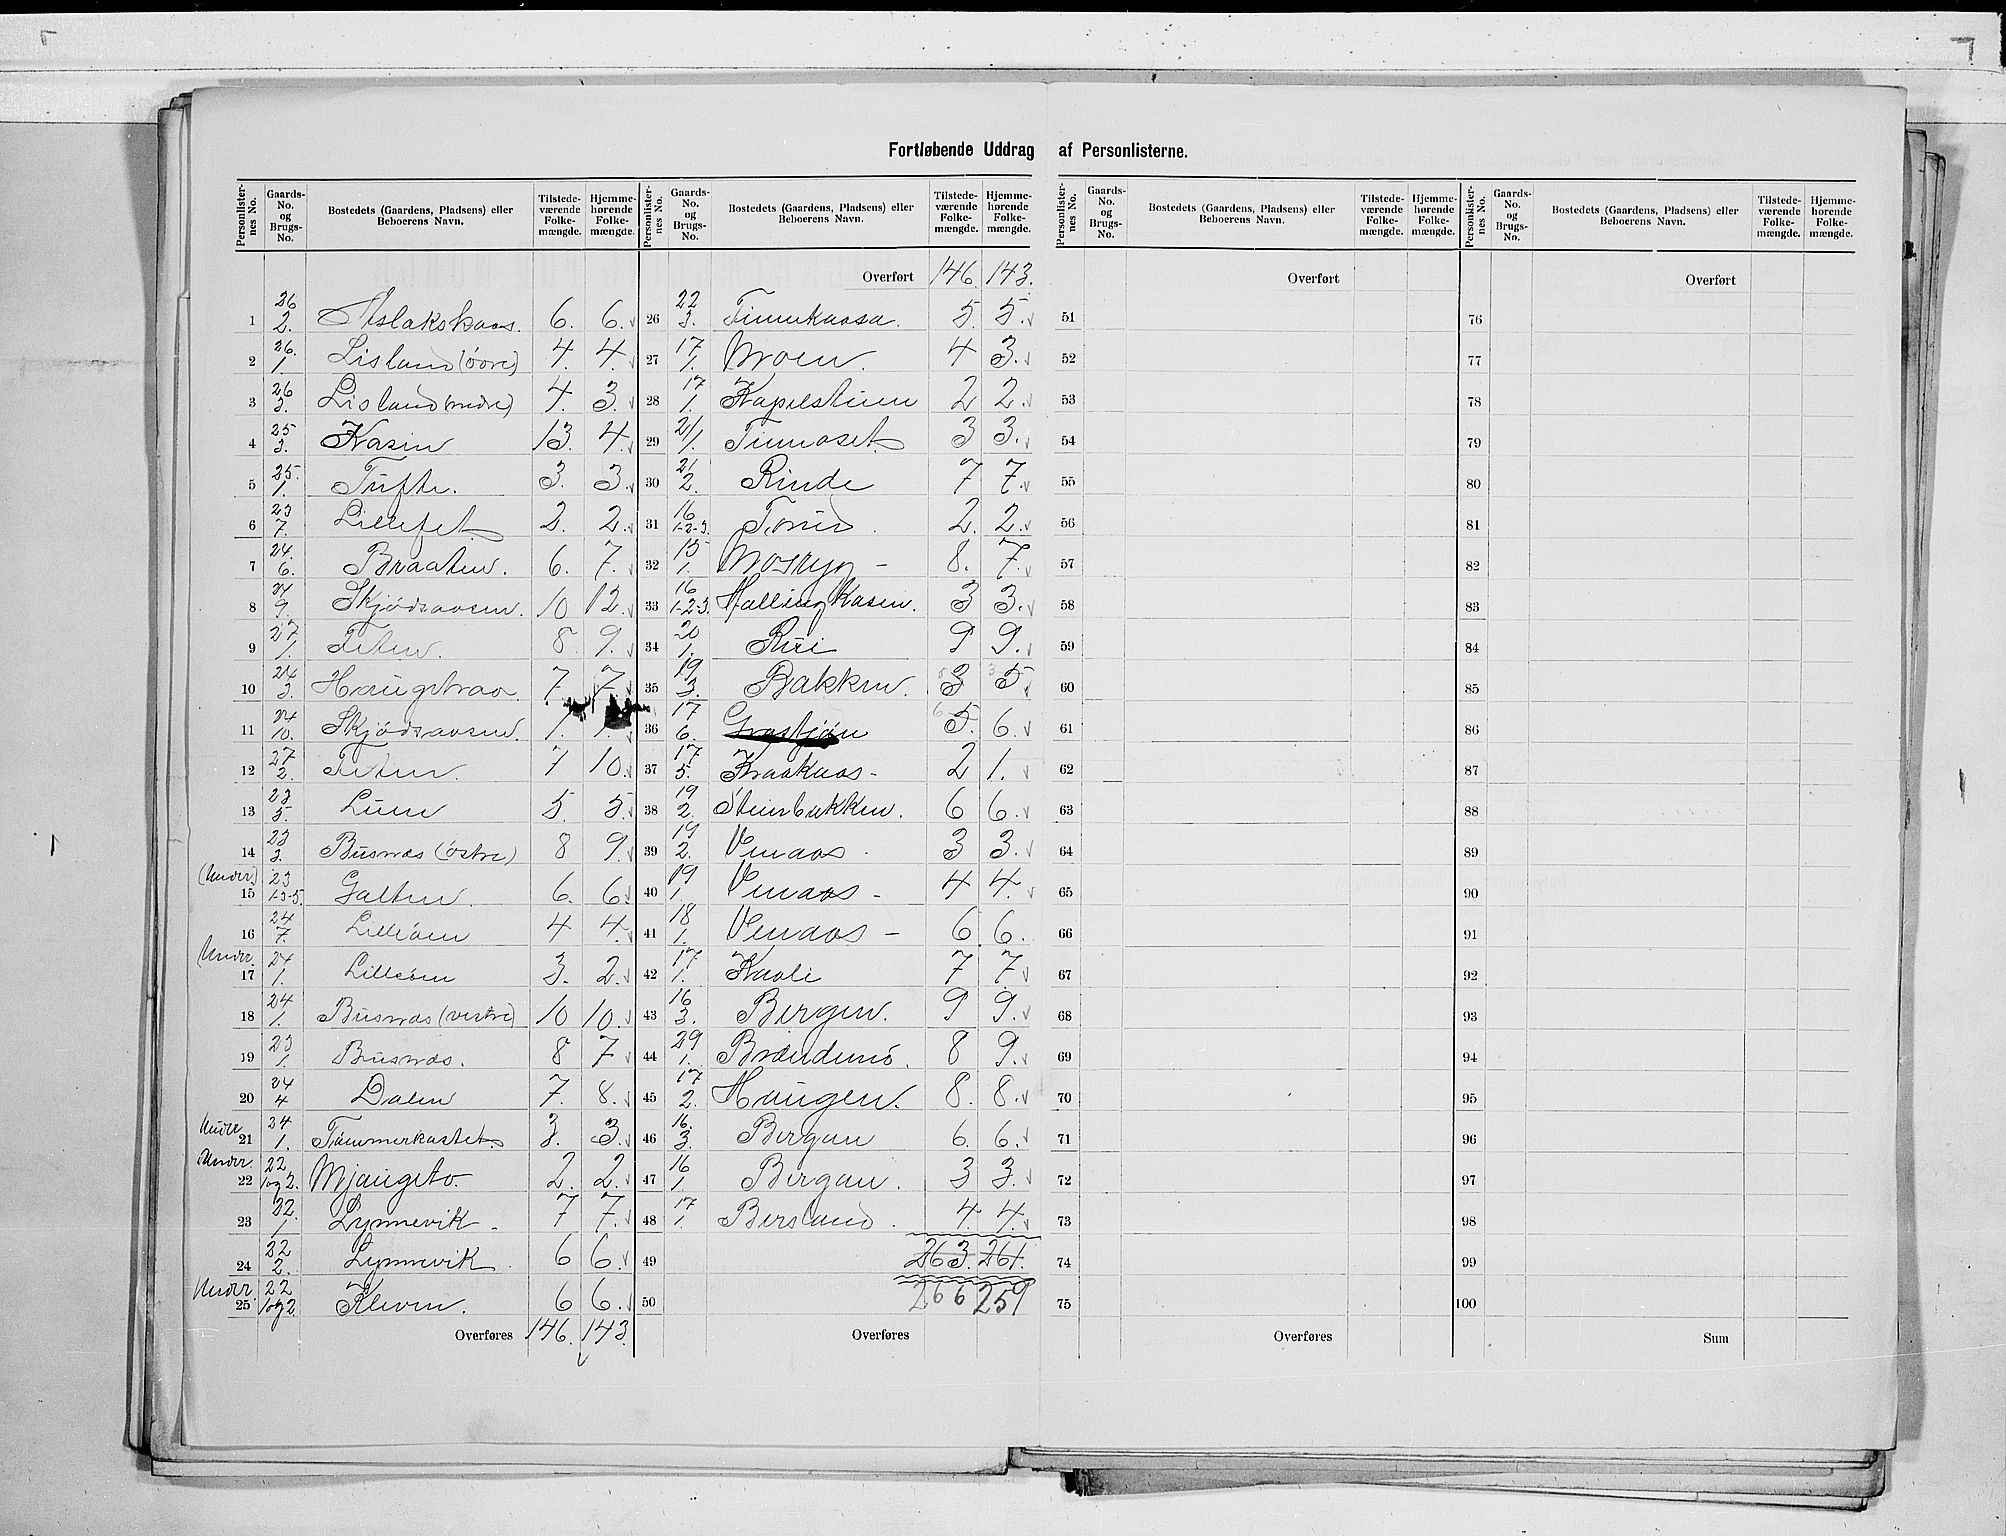 Fortløbende Uddrag af Personlisterne.
Personlister-nes No. Gaards-No. og Brugs-No. Bostedets (Gaardens, Pladsens) eller Beboerens Navn. Tilstede-værende Folke-mængde. Hjemme-hørende Folke-mængde.
1 26 2. Aslakskaas. 6. 6.
2 26. 1. Lisland (övre) 4. 4.
3 26 3. Lisland (nedre) 4. 3.
4 25 3. Kasin 13. 4.
5 25. 1. Tufte. 3. 3.
6 23 7. Lillefet 2. 2.
7 24. 6. Braaten. 6. 7.
8 24 9. Skjödsaasen. 10 12.
9 27 1. Teten. 8. 9.
10 24 3. Haugstraa. 7. 7.
11 24 10. Skjödsaasen. 1. 1.
12 27 2. Teten. 7 10.
13 23 5. Lunn 5. 5.
14 23 3. Busnæs (östre) 8 9.
(Under) 15 23 1-3-5. Galten. 6. 6
16 24 7. Lilleöen 4 4.
(Under. 17 24 1. Lilleöen 3. 2.
18 24 1. Busnæs (vestre) 10 10.
19 23 1. Busnæs. 8 7
20 24 4 Dalen 7. 8.
Under 21 24 1. Tömmerkastet. 3. 3.
Under. 22 22 1og2. Mjaugeto. 2. 2.
23 22. 1 Lynnevik - 7 7.
24 22 2. Lynnevik. 6 6.
Under. 25 22 1og2 Kleven. 6 6.
Overføres 146. 143
Personlister-nes No. Gaards-No. og Brugs-No. Bostedets (Gaardens, Pladsens) eller Beboerens Navn. Tilstede-værende Folke-mængde. Hjemme-hørende Folke-mængde.
Overført 146. 143.
26 22 3. Tinnekaasa. 5. 5.
27 17 1. Moen. 4 3.
28 17 1. Kapelsteien 2 2.
29 21 1. Tinnoset 3 3.
30 21 2. Rinde 7 7.
31 16 1-2-3. 2. 2.
32 15 1. Mosryg - 8. 7.
33 16 1-2-3. Hallingkasen. 3 3.
34 20 1. Rui 9 9.
35 19 3. Bakken. 5 3 3 5
36 17 6. Grastjön 6 5. 6.
37 17 5. Kraakaas - 2 1.
38 19 2. Steinbakken. 6 6.
39 19 2. Venaas. 3 3.
40 19 1. Venaas - 4 4.
41 18 1. Venaas - 6 6.
42 17 1. Kaali 7 7
43 16 3. Bergen. 9 9.
44 29 1. Brendemö. 8 9.
45 17 2. Haugen. 8. 8.
46 16. 3. Bergan 6. 6.
47 16 1. Bergan. 3 3.
48 17 1. Bersland. 4. 4.
49 263. 261.
50 266 259
Overføres
Personlister-nes No. Gaards-No. og Brugs-No. Bostedets (Gaardens, Pladsens) eller Beboerens Navn. Tilstede-værende Folke-mængde. Hjemme-hørende Folke-mængde.
Overført
51
52
53
54
55
56
57
58
59
60
61
62
63
64
65
66
67
68
69
70
71
72
73
74
75
Overføres
Personlister-nes No. Gaards-No. og Brugs-No. Bostedets (Gaardens, Pladsens) eller Beboerens Navn. Tilstede-værende Folke-mængde. Hjemme-hørende Folke-mængde.
Overført
76
77
78
79
80
81
82
83
84
85
86
87
88
89
90
91
92
93
94
95
96
97
98
99
100
Sum